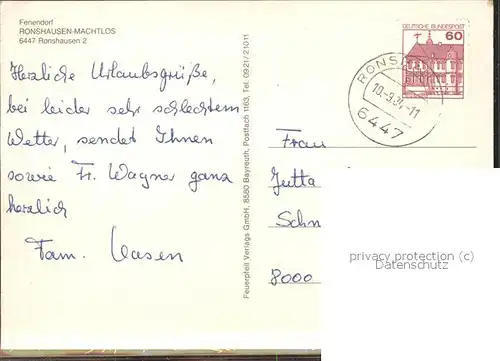 Feriendorf
RONSHAUSEN-MACHTLOS
6447 Ronshausen 2
Herzliche Urlaubsgrüße,
bei leider sehr schlechtem
Wetter, sendet Ihnen
sowie Fr. Wagner ganz
herzlich
Fam. Vasen
Feuerpfeil Verlags GmbH, 8580 Bayreuth, Postfach 1163, Tel. 0921/21011
DEUTSCHE BUNDESPOST
60
RONS
10.-9.8
-11
6447
Frau
Jutta
Schn
8000
privacy protection (c)
Datenschutz